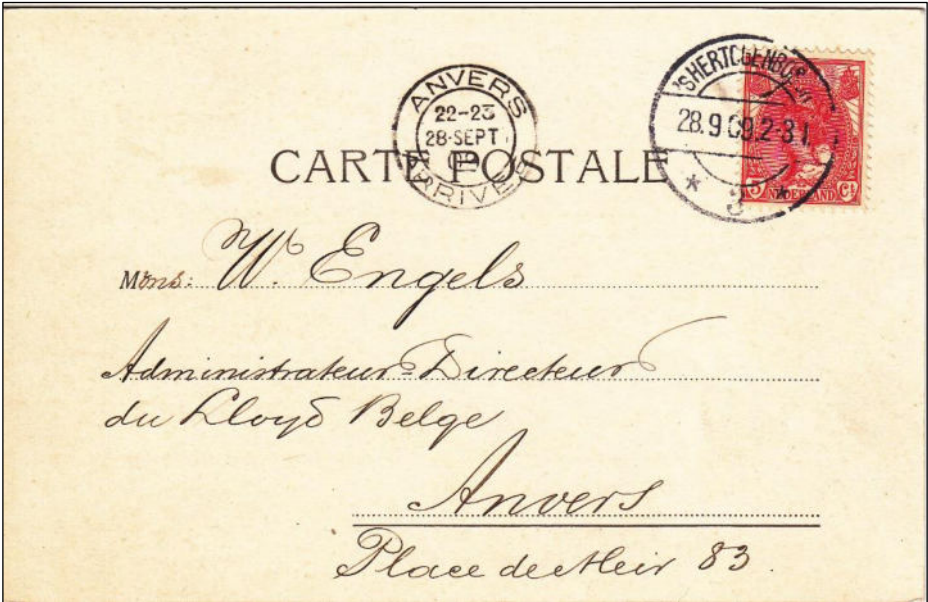 ANVERS
22-23
28·SEPT
09
ARRIVEE
'S HERTOGENBOSCH
28.9.09.2-3 N
* 3 *
5 NEDERLAND Ct
CARTE POSTALE
Mons: W. Engels
Administrateur-Directeur
du Lloyd Belge
Anvers
Place de Meir 83